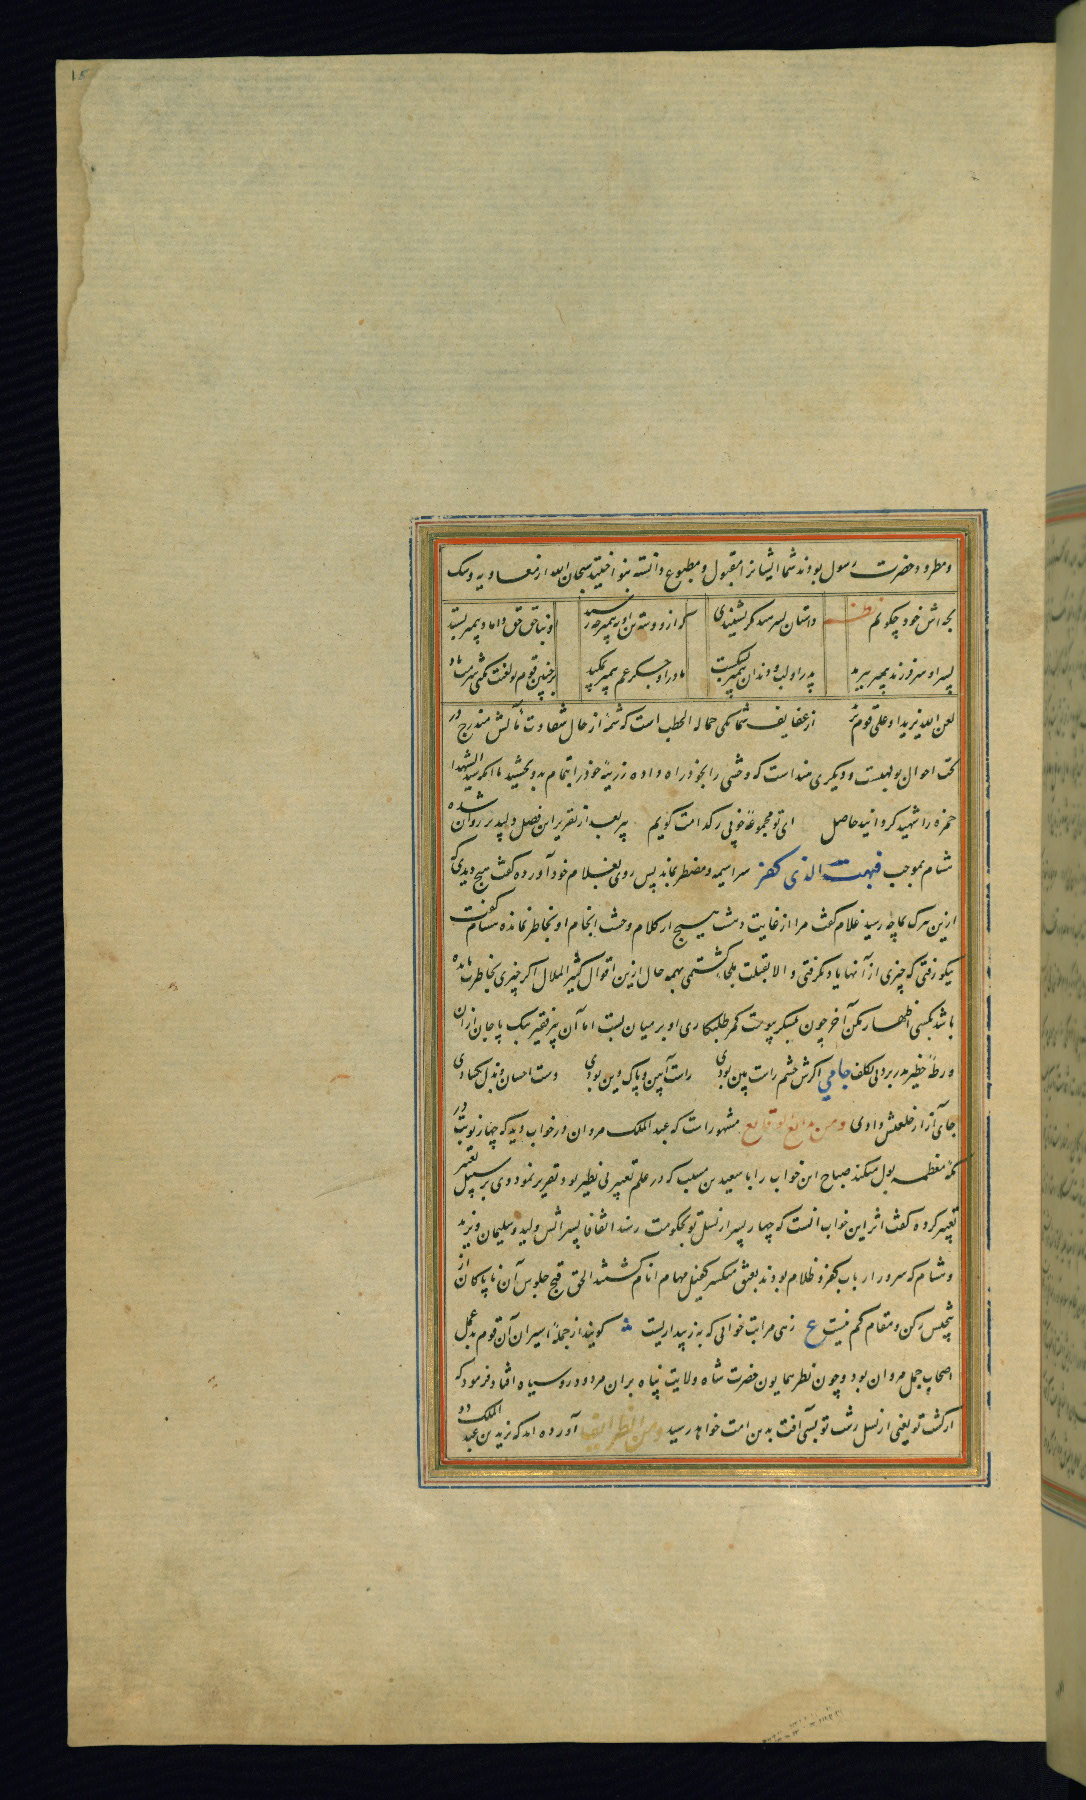 و مطرود حضرت رسول بودند شما ایشانرا مقبول و مطبوع دانسته بنواختید سبحان الله از معاویه و سک
بچه اش خود چکویم نظم داستان پسر هند مکر نشنیدی که ازو و سه تن او به پیمبر چه رسید او بناحق حق داماد پیمبر بستد
پسر او سر فرزند پیمبر ببرید پدر او لب و دندان پیمبر بشکست مادر او جکر عم پیمبر بمکید بر چنین قوم تو لعنت نکنی شرمت باد
لعن الله یزیدا و علی قوم یزید از عفایف شما یکی حمالة الحطب است که شمه از حال شقاوت مآلش مندرج در
تحت احوال بولهبست و دیکری هند است که وحشی را بخود راه داده زرینه خود را بتمام بدو بخشید تا آنکه سید الشهدا
حمزه را شهید کردانید حاصل ای تو مجموعه خوبی ز کدامت کویم پیر بعد از تقریر این فصل دلپذیر روان شده
هشام بموجب فبهت الذی کفر سراسیمه و مضطر بماند پس روی بغلام خود آورده کفت هیچ دیدی که
ازین مرک بما چه رسید غلام کفت مرا از غایت دهشت هیچ از کلام وحشت انجام او بخاطر نمانده هشام کفت
نیکو رفتی که چیزی از آنها یاد نکرفتی و الا بقتلت ملجا کشتمی بهمه حال ازین اقوال کثیر الملال اکر چیزی بخاطرت مانده
باشد بکسی اظهار مکن آخر چون بلشکر پیوست کمر طلبکاری او بر میان بست اما آن پیر فقیر سبک پا جان از آن
ورطه خطیر بدر برد بی تکلف جامی اکرش چشم راست بین بودی راست آیین و پاک دین بودی دست احسان و بذل بکشادی
جای آزار خلعتش دادی و من بدائع الوقایع مشهور است که عبد الملک مروان در خواب دید که چهار نوبت در
مکه معظمه بول میکند صباح این خواب را با سعید بن مسیب که در علم تعبیر بی نظیر بود تقریر نمود وی بر سبیل تعبیر
تعبیر کرده کفت اثر این خواب آنست که چهار پسر از نسل تو بحکومت رسند اتفاقا پسرانش ولید و سلیمان و یزید
و هشام که سرور ارباب کفر و ظلام بودند کفیل مهام انام کشتند الحق قبح جلوس آن ناپاکان از
تنجیس رکن و مقام کم نیست ع زهی مراتب خوابی که به ز بیداریست کویند از جمله اسیران آن قوم بد عمل
اصحاب جمل مروان بود و چون نظر همایون حضرت شاه ولایت پناه بران مردود رو سیاه افتاد فرمود که
از کشت تو یعنی از نسل زشت تو بسی آفت بدین امت خواهد رسید و من الظرایف آورده اند که یزید بن عبد الملک دو